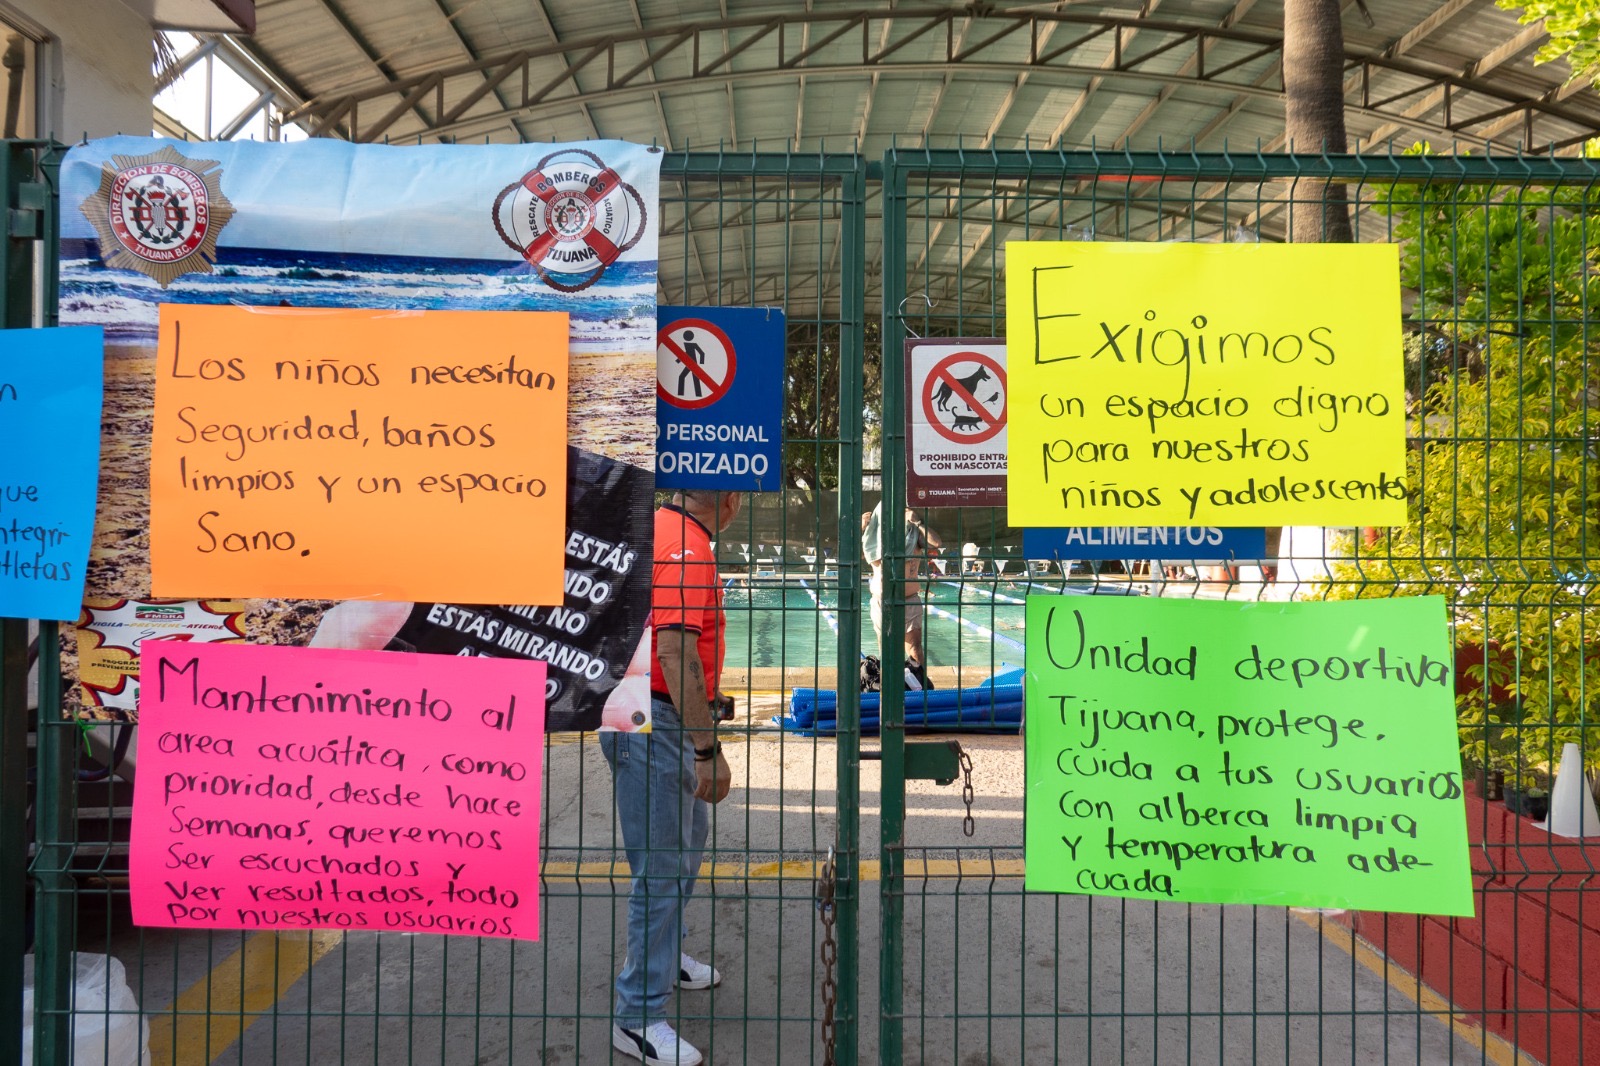 DIRECCIÓN DE BOMBEROS
TIJUANA B.C.
BOMBEROS
RESCATE
ACUÁTICO
TIJUANA
n
que
ntegri-
tletas
Los niños necesitan
Seguridad, baños
limpios y un espacio
Sano.
PERSONAL
ORIZADO
PROHIBIDO ENTRA
CON MASCOTAS
TIJUANA
Exigimos
un espacio digno
para nuestros
niños y adolescentes
ALIMENTOS
ESTÁS
NDO
MI NO
ESTÁS MIRANDO
A
O
FMSRA
VIGILA-PREVIENE-ATIENDE
Mantenimiento al
area acuática, como
prioridad, desde hace
Semanas, queremos
Ser escuchados y
Ver resultados, todo
por nuestros usuarios.
Unidad deportiva
Tijuana, protege.
Cuida a tus usuarios
con alberca limpia
y temperatura ade-
cuada.